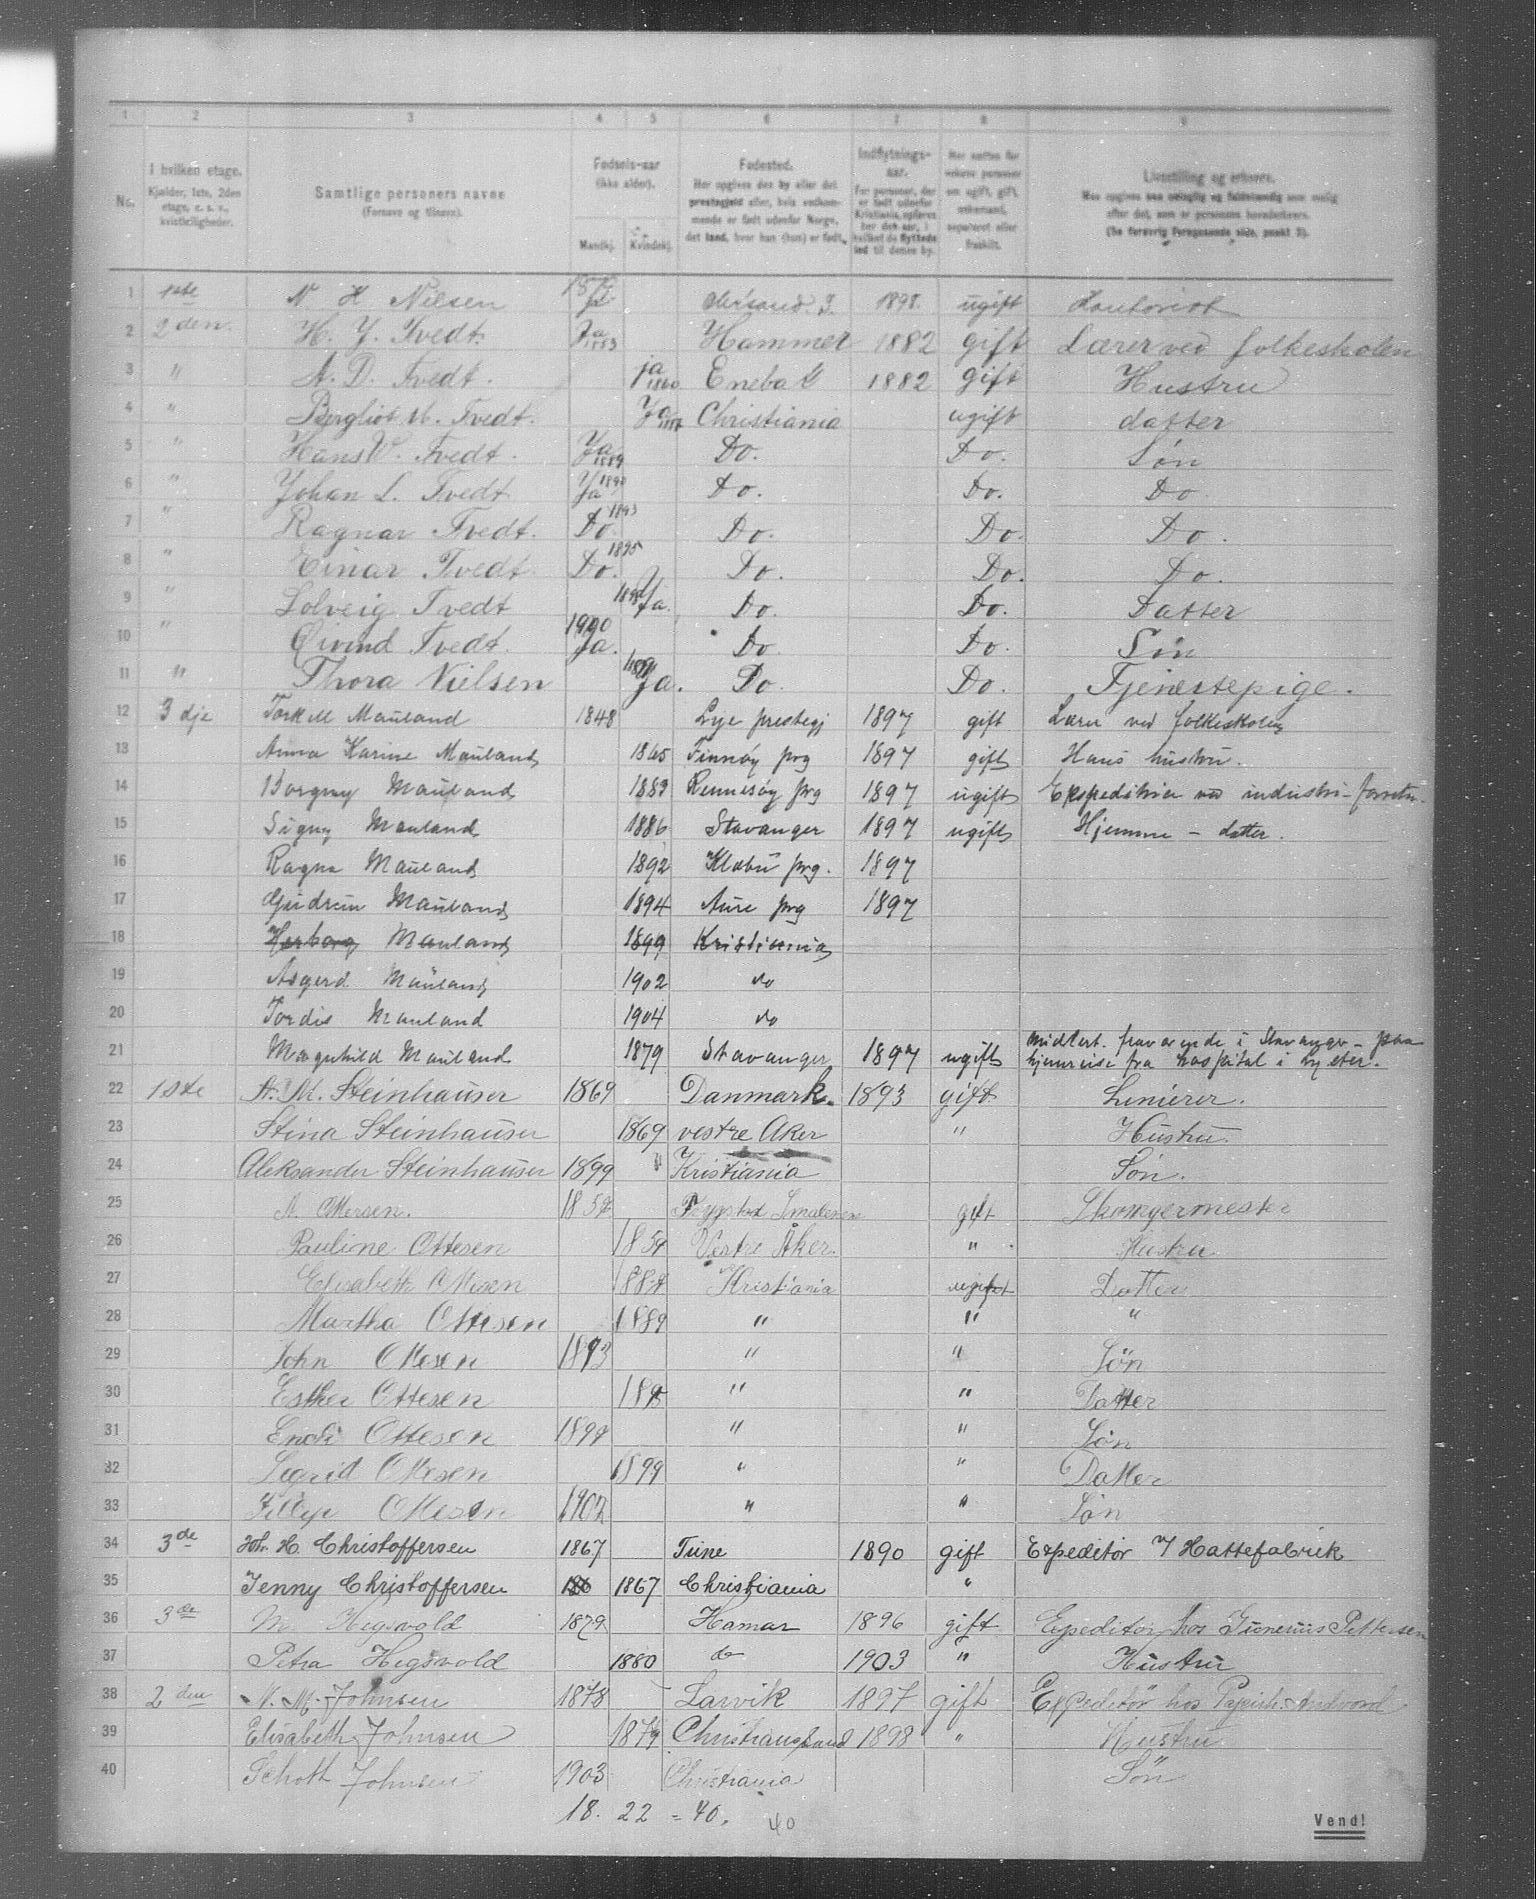 1 2 3 4 5 6 7 8 9
No. I hvilken etage. Kjælder, 1ste, 2den etage, o. s. v., kvistleiligheder. Samtlige personers navne (Fornavn og tilnavn). Fødsels-aar (ikke alder). Mandkj. Kvindekj. Fødested. Her opgives den by eller det prestegjeld eller, hvis vedkommende er født udenfor Norge, det land, hvor han (hun) er født. Indflytnings-aar. For personer, der er født udenfor Kristiania, opføres her det aar, i hvilket de flyttede ind til denne by. Her sættes for voksne personer om ugift, gift, enkemand, separeret eller fraskilt. Livsstilling og erhverv. (Se forøvrig foregaaende side, punkt 3).
1 1ste N H Nielsen Ja 1898. ugift Kontorist
2 2den. H. J. Tvedt. Ja 1853 Hammer 1882 gift Lærer ved folkeskolen
3 " A. D. Tvedt. ja 1860 Enebak 1882 gift Hustru
4 " Bergliot M. Tvedt. Ja Christiania ugift datter
5 " Hans V. Tvedt. Ja 1889 Do. Do. Søn
6 " Johan L. Tvedt Ja Do. Do. Do
7 " Ragnar Tvedt. Do. 1893 Do. Do. Do.
8 " Einar Tvedt Do. 1895 Do. Do. Do.
9 " Solveig Tvedt Ja. Do. Do. Datter
10 " Øivind Tvedt. 1900 Ja. Do. Do. Søn
11 " Thora Nielsen Ja. Do. Do. Tjenestepige.
12 3dje Torkell Mauland 1848 Lye prestegj 1897 gift Lærer ved folkeskolen
13 Anna Karine Mauland 1865 Finnøy prg 1897 gift Hans hustru.
14 Borgny Mauland 1883 Rennesøy prg 1897 ugift Ekspeditrice ved industri-forretn.
15 Signy Mauland 1886 Stavanger 1897 ugift Hjemme – datter.
16 Ragna Mauland 1892 Klæbu prg. 1897
17 Gudrun Mauland 1894 Aure prg 1897
18 Herborg Mauland 1899 Kristiania
19 Asgerd Mauland 1902 do
20 Tordis Mauland 1904 do
21 Magnhild Mauland 1879 Stavanger 1897 ugift midlert. fraværende i Stavanger – paa
hjemreise fra hospital i
22 1ste A. M. Steinhauser 1869 Danmark. 1893 gift Linierer.
23 Stina Steinhauser 1869 vestre Aker " Hustru
24 Aleksander Steinhauser 1899 " Kristiania Søn.
25 A. Ottersen. Smalenene gift Skomagermester
26 Pauline Ottesen Vestre Aker. " Hustru
27 Elisabeth Ottesen Kristiania ugift Datter
28 Martha Ottesen 1889 " " "
29 John Ottesen 1893 " " Søn
30 Esther Ottesen " " Datter
31 Ottesen " " Søn
32 Sigrid Ottesen 1899 " " Datter
33 Fillip Ottesen 1902 " " Søn
34 3de Joh. H. Christoffersen 1867 Tune 1890 gift Expeditør i Hattefabrik
35 Jenny Christoffersen 1867 Christiania "
36 3de M. Hegsvold 1879 Hamar 1896 gift Expeditør hos Gunerius Pettersen
37 Petra Hegsvold 1880 do 1903 " Hustru
38 2den N. M. Johnsen 1878 Larvik 1897 gift Expeditør hos Andvord
39 Elisabeth Johnsen 1879 Christianssand 1898 " Hustru
40 Schott Johnsen 1903 Christiania Søn
18. 22 = 40. 40
Vend!